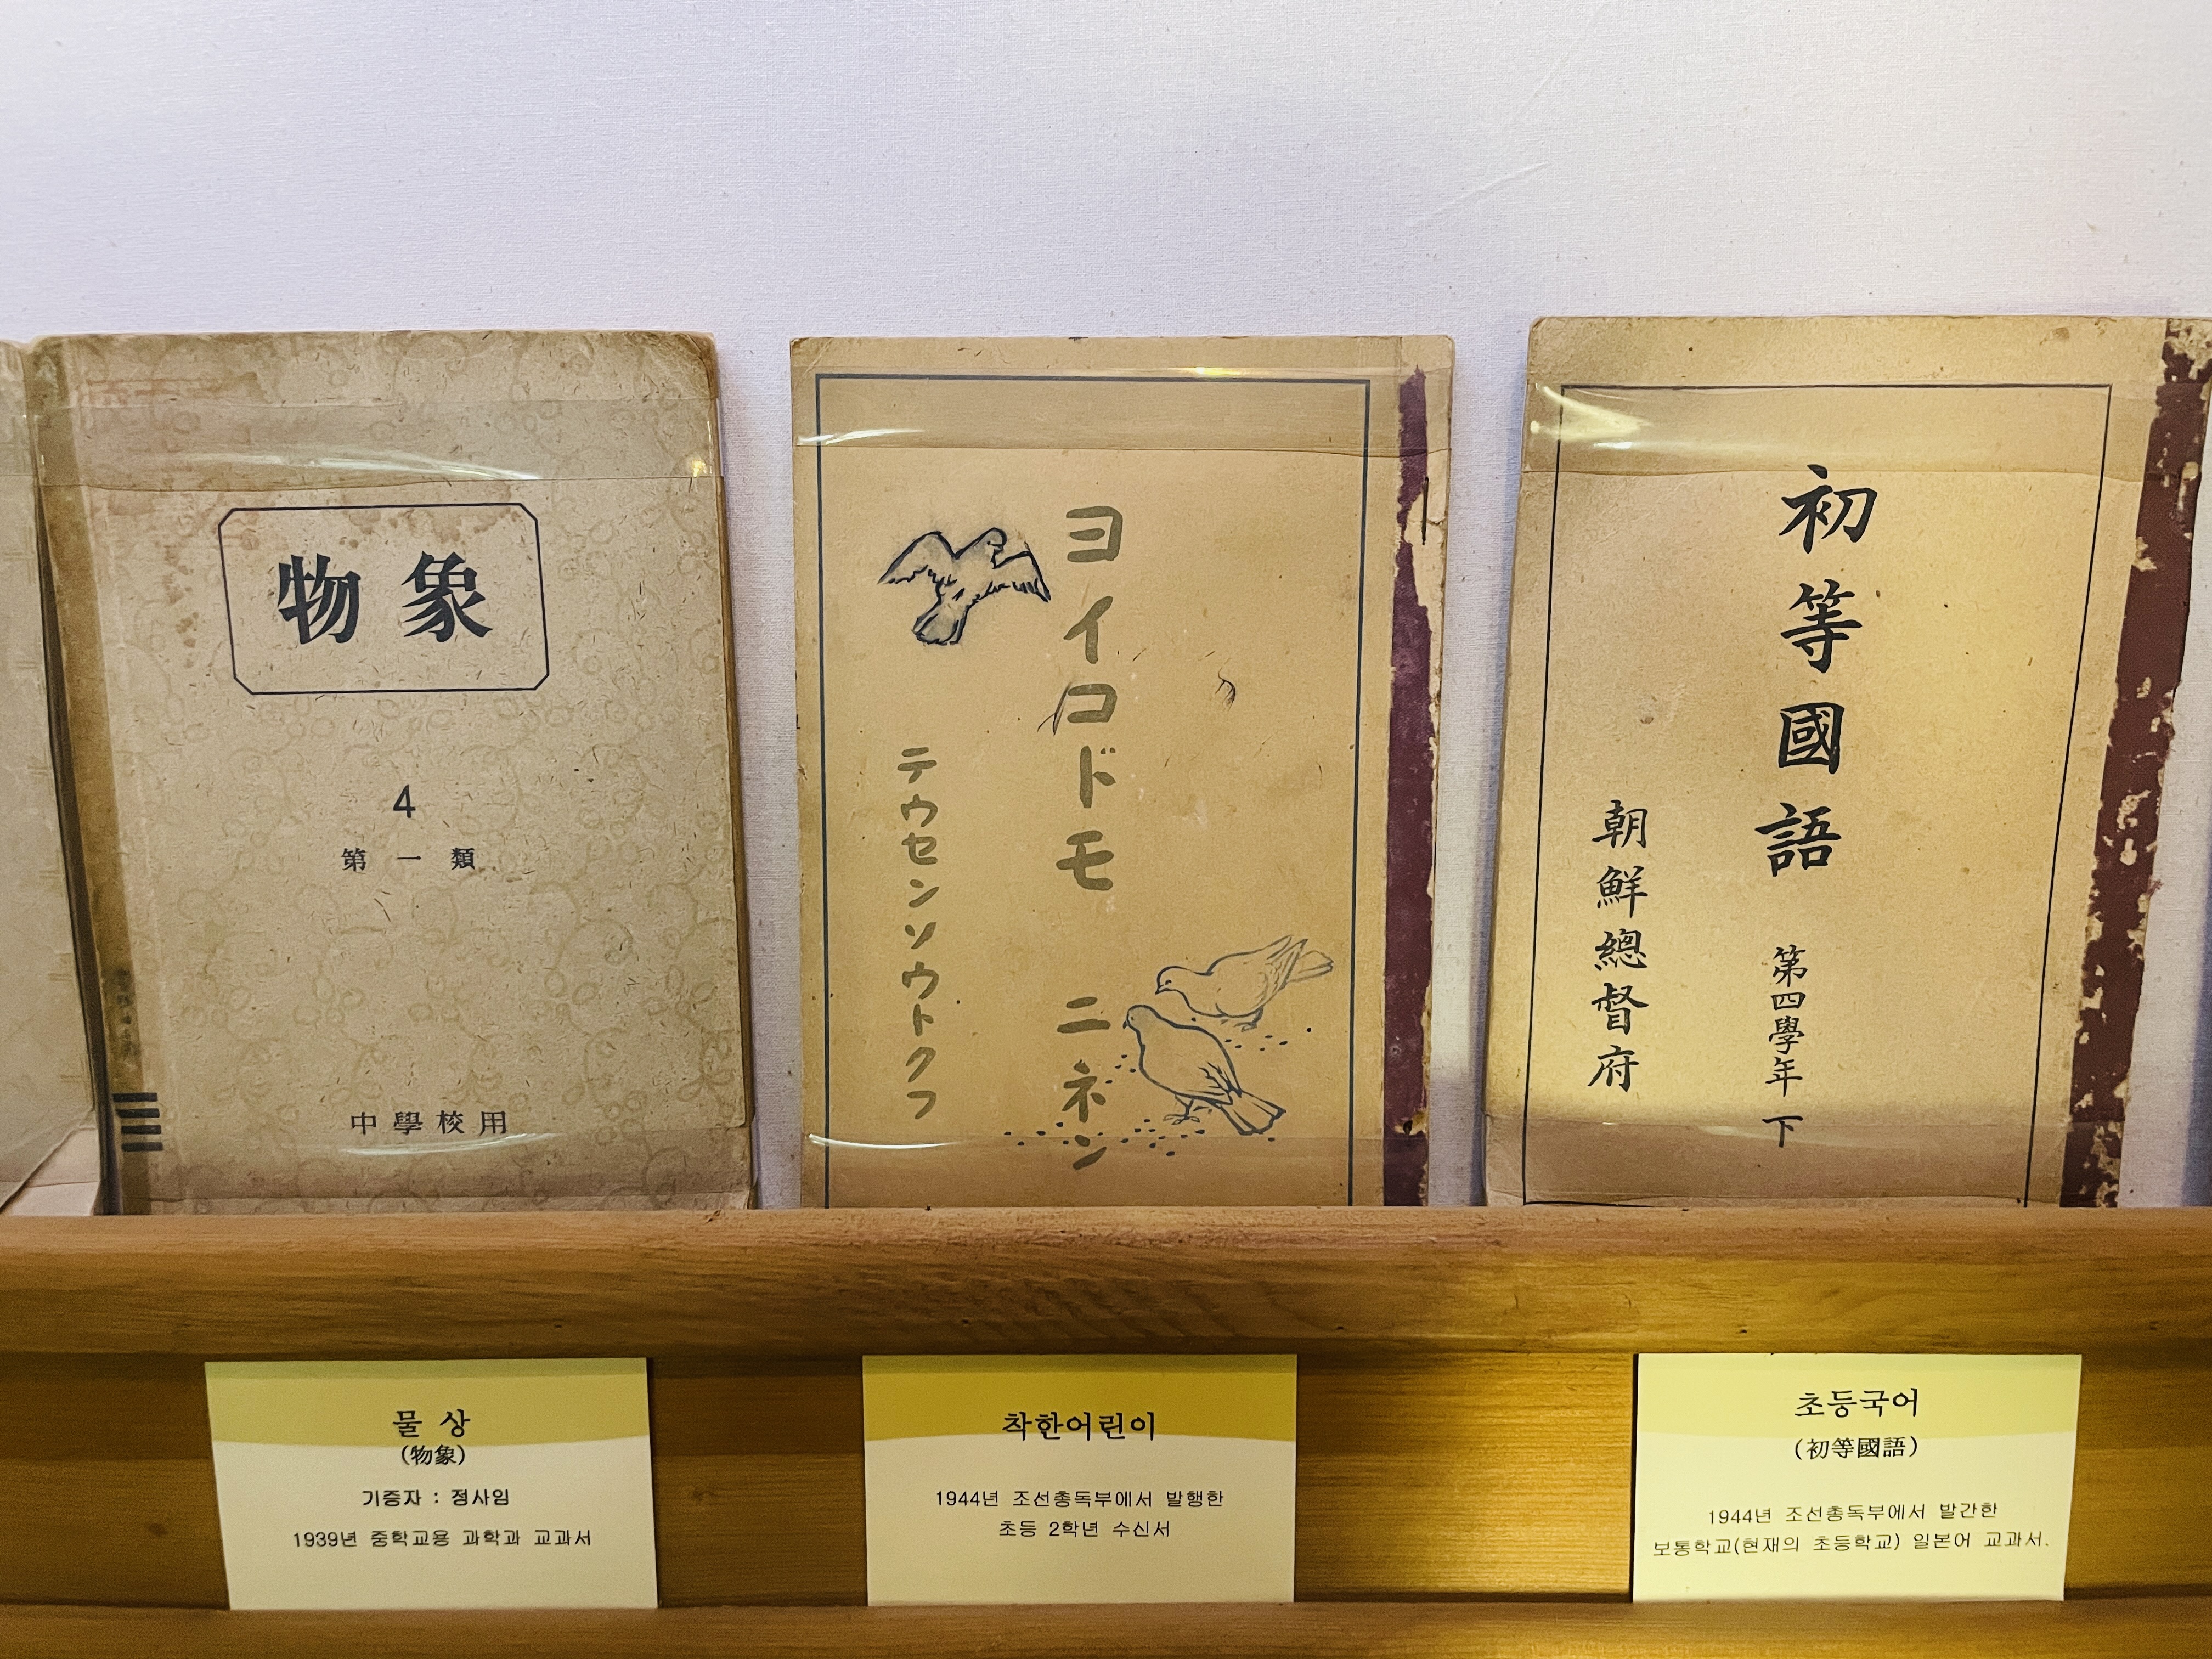 物象
4
第一類
中學校用
ヨイコドモ ニネン
テウセンソウトクフ
初等國語 第四學年 下
朝鮮總督府
물 상
(物象)
기증자 : 정사임
1939년 중학교용 과학과 교과서
착한어린이
1944년 조선총독부에서 발행한
초등 2학년 수신서
초등국어
(初等國語)
1944년 조선총독부에서 발간한
보통학교(현재의 초등학교) 일본어 교과서.